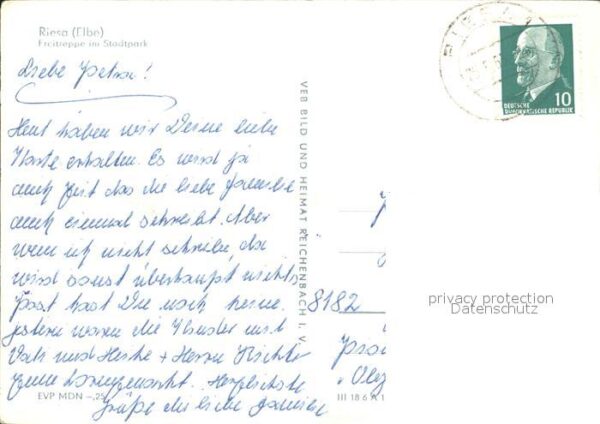 Riesa (Elbe)
Freitreppe im Stadtpark
Liebe Petra!
Heut haben wir Deine liebe
Karte erhalten. Es wird ja
auch Zeit das die liebe Familie
auch einmal schreibt. Aber
wenn ich nicht schreibe, da
wird sonst überhaupt nichts
Post hast Du noch keine.
gestern waren die Kinder mit
Vati und Heike + Herrn Richter
Herzlichste
Grüße die liebe Familie
VEB BILD UND HEIMAT REICHENBACH I. V.
EVP MDN -,25
III 18 6
8182
DEUTSCHE
DEMOKRATISCHE REPUBLIK
10
privacy protection
Datenschutz